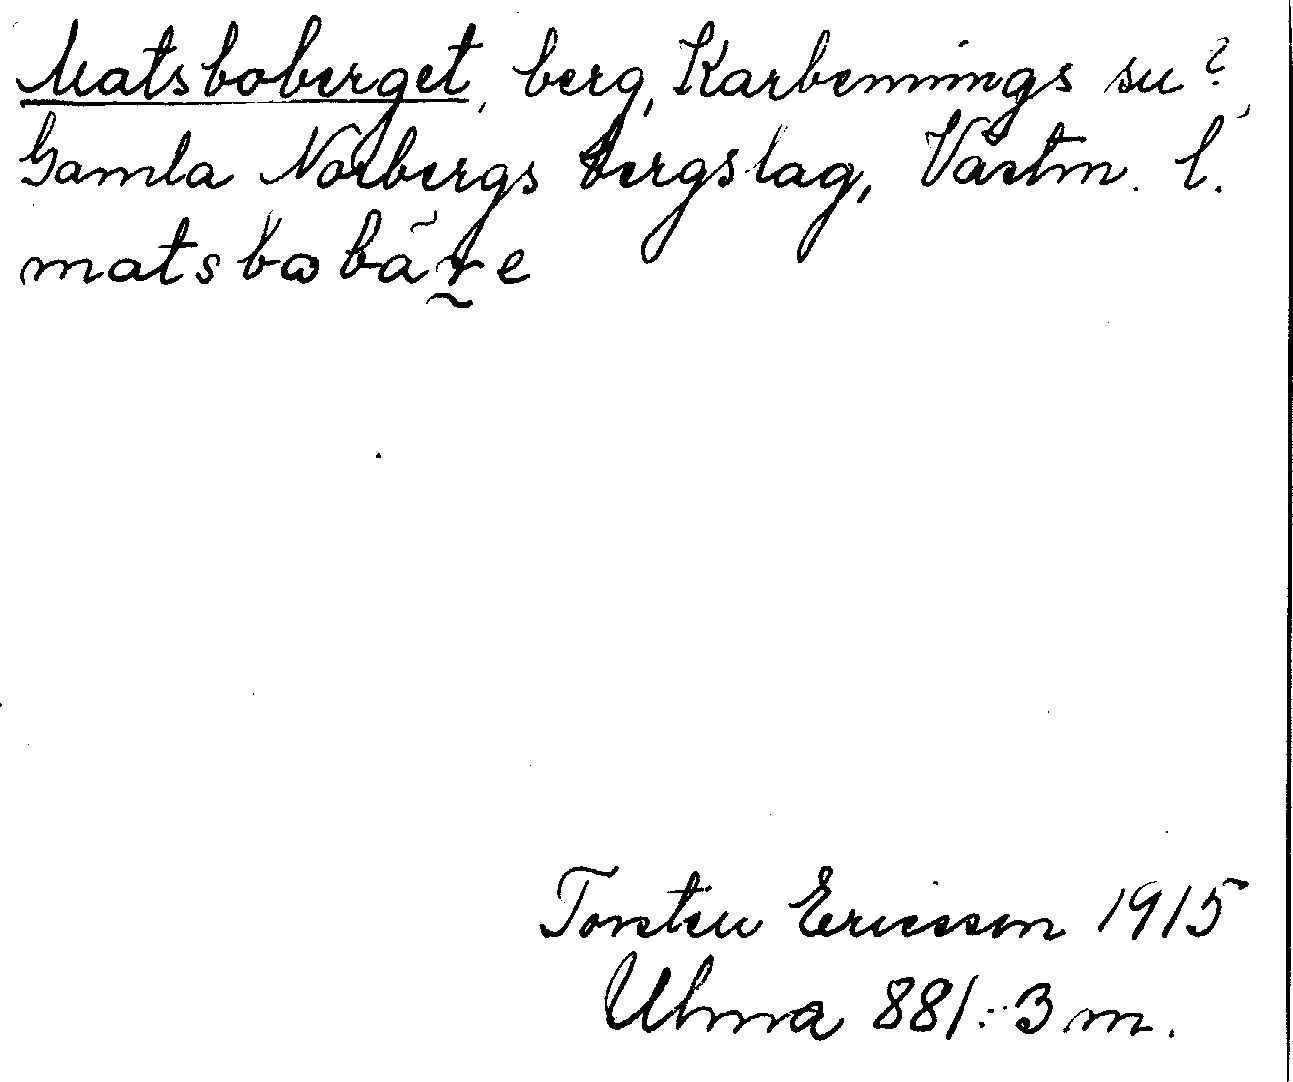 Matsboberget, berg, Karbennings sn?,
Gamla Norbergs bergslag, Västm. l.
matsbobäre
Torsten Ericsson 1915
Ulma 881:3 m.